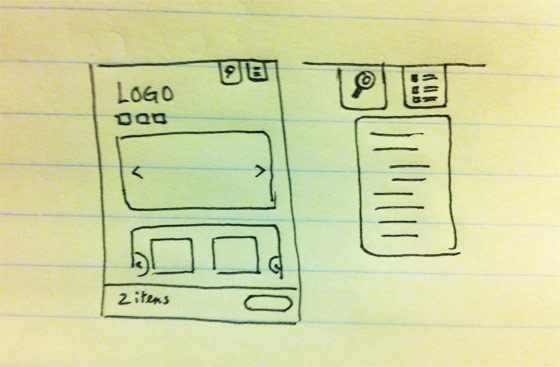 LOGO
2 itens